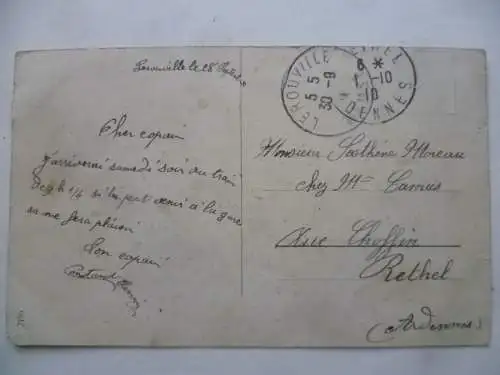 Lerouville le 28
Cher copain
j'arriverai samedi soir au train
de 9 h 1/4 si tu peut venir à la gare
sa me fera plaisir
Ton copain
LEROUVILLE
5 5
30 -9
RETHEL
6 *
1 -10
10
ARDENNES
Monsieur Moreau
chez Mr Camus
Rue Choffin
Rethel
(Ardennes)